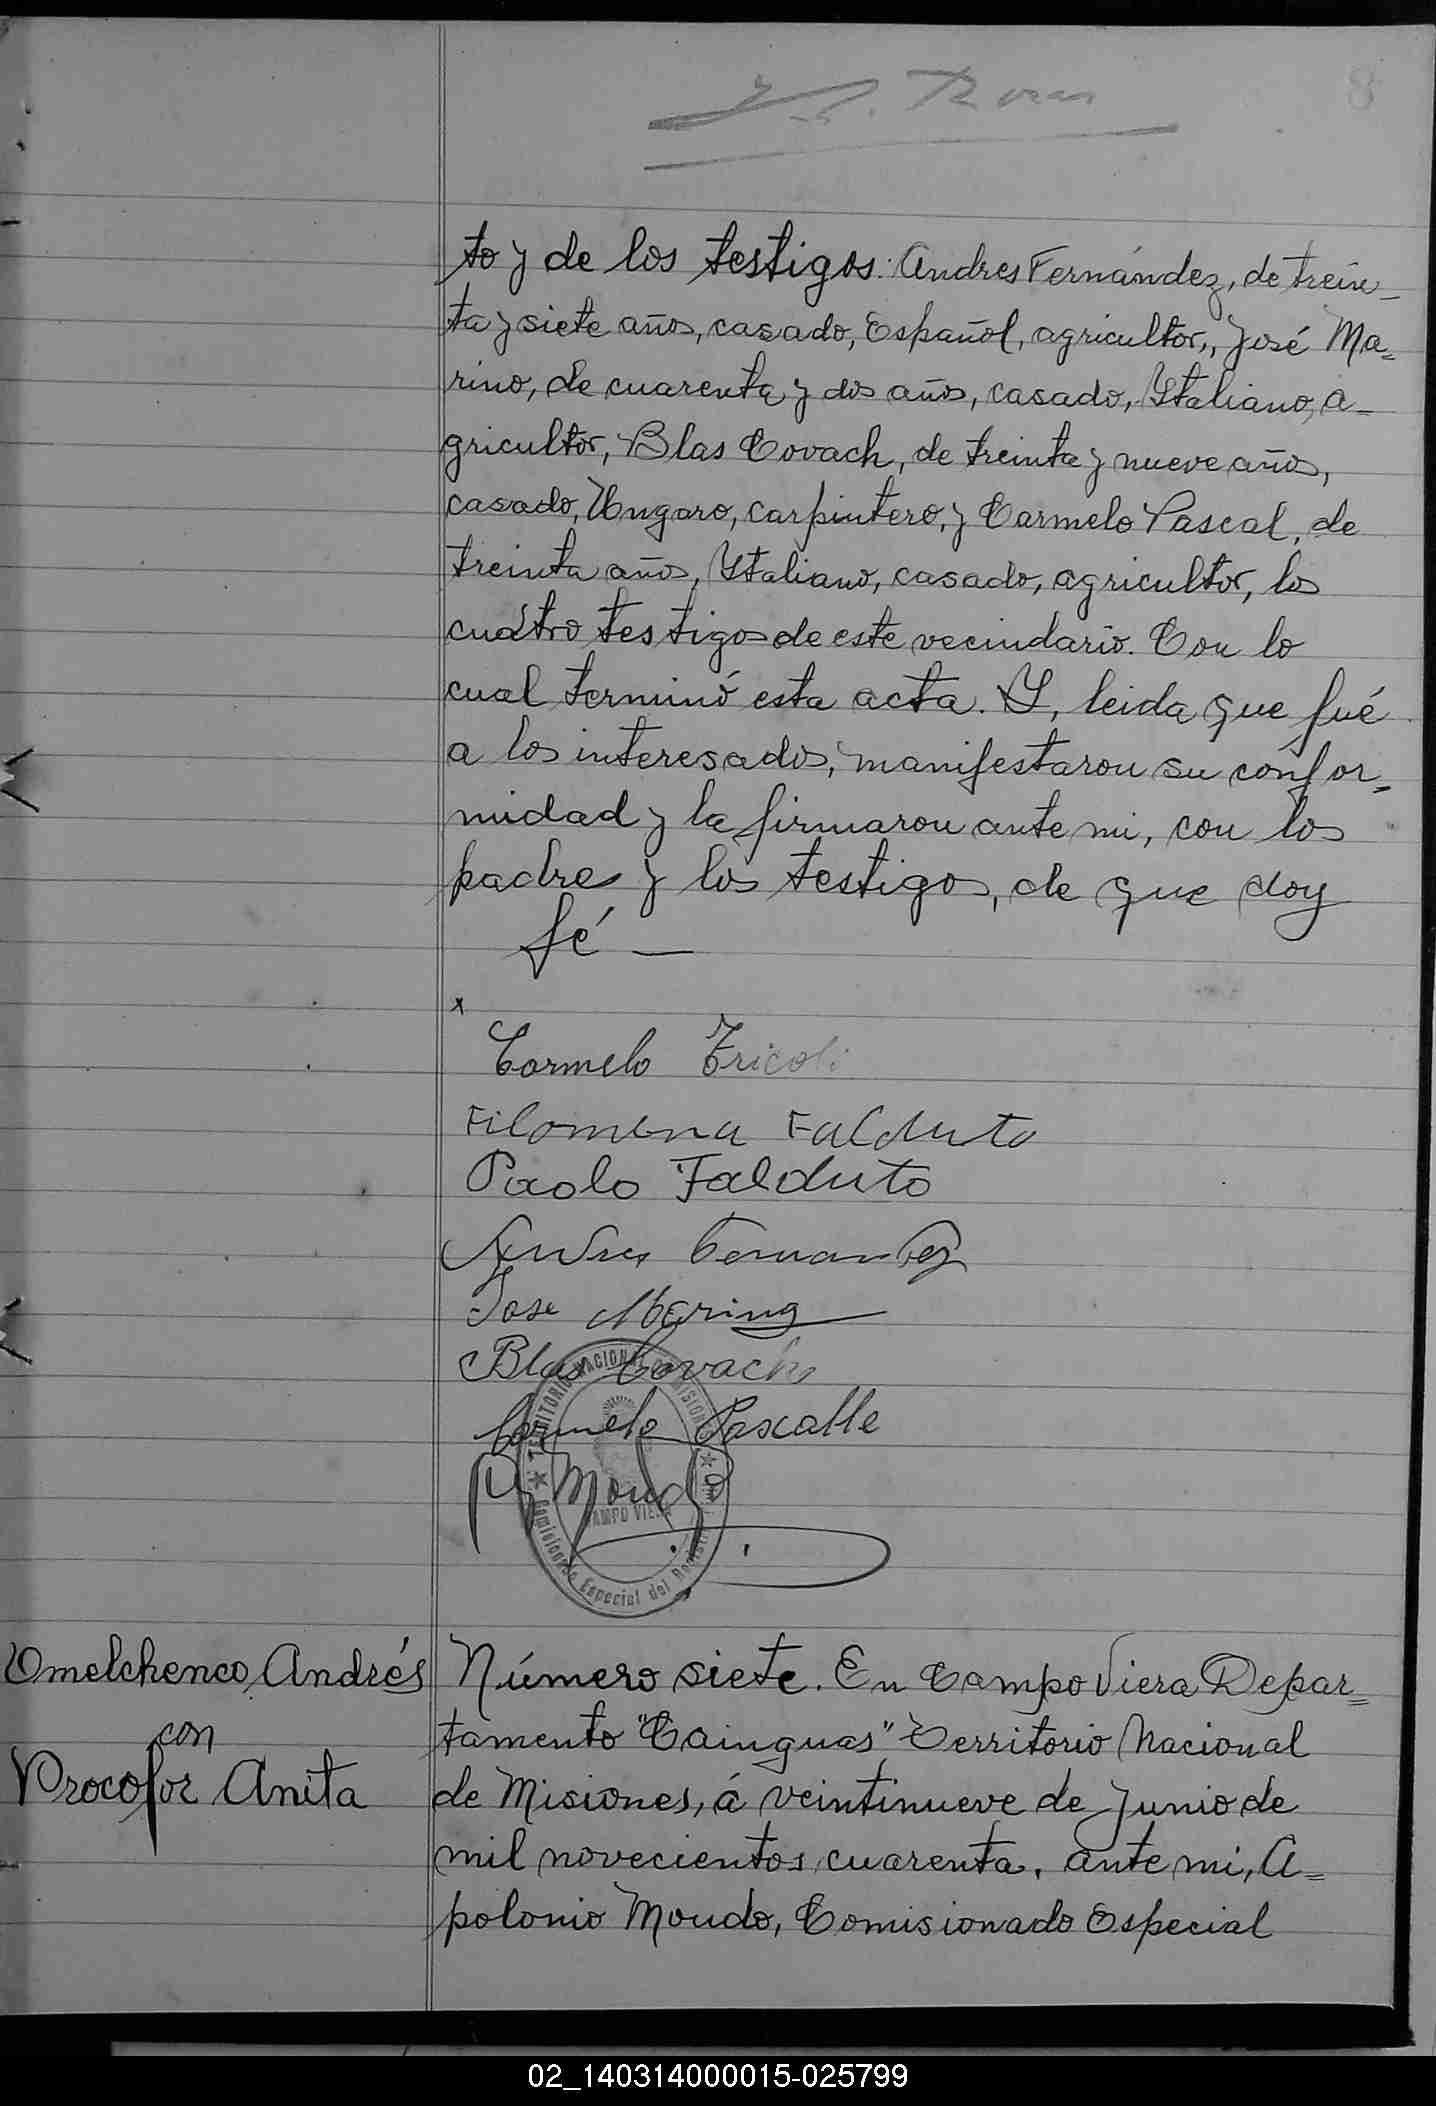 8
to y de los testigos: Andres Fernández, de trein-
ta y siete años, casado, Español, agricultor, José Ma=
rino, de cuarenta y dos años, casado, Ytaliano, a-
gricultor, Blas Covach, de treinta y nueve años,
casado, Ungaro, carpintero, y Carmelo Pascal, de
treinta años, Ytaliano, casado, agricultor, los
cuatro testigos de este vecindario. Con lo
cual terminó esta acta. Y, leida que fué
a los interesados, manifestaron su confor=
midad y la firmaron ante mi, con los
padres y los testigos, de que doy
fé —
x
Carmelo Tricoli
Filomena Falduto
Paolo Falduto
Andres Fernandez
Jose Marino
Blas Covach
Carmelo Pascalle
Mondo
TERRITORIO NACIONAL DE MISIONES
CAMPO VIERA
Comisionado Especial del Registro
Omelchenco Andrés
con
Procofor Anita
Número siete. En Campo Viera Depar=
tamento "Cainguas" Territorio Nacional
de Misiones, á veintinueve de Junio de
mil novecientos cuarenta, ante mi, A=
polonio Mondo, Comisionado Especial
02_140314000015-025799